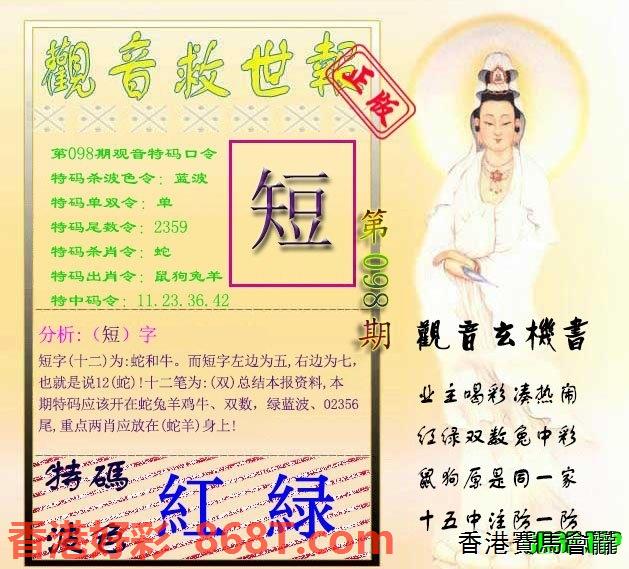 觀音救世報
正版
第098期观音特码口令
特码杀波色令：蓝波
特码单双令：单
特码尾数令：2359
特码杀肖令：蛇
特码出肖令：鼠狗兔羊
特中码令：11.23.36.42
短
第098期
分析:（短）字
短字(十二)为:蛇和牛。而短字左边为五,右边为七,
也就是说12(蛇)!十二笔为:(双)总结本报资料,本
期特码应该开在蛇兔羊鸡牛、双数，绿蓝波、02356
尾,重点两肖应放在(蛇羊)身上!
觀音玄機書
业主喝彩凑热闹
红绿双数兔中彩
鼠狗原是同一家
十五中注防一防
特碼
波色
紅 绿
香港好彩-868T.com
香港賽馬會